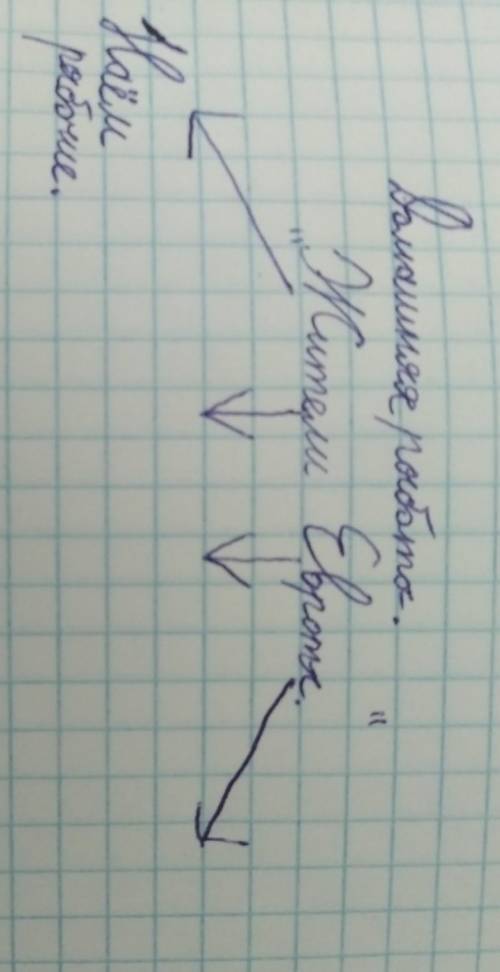 Домашняя работа.
"Жители Европы."
Наём
рабочие.